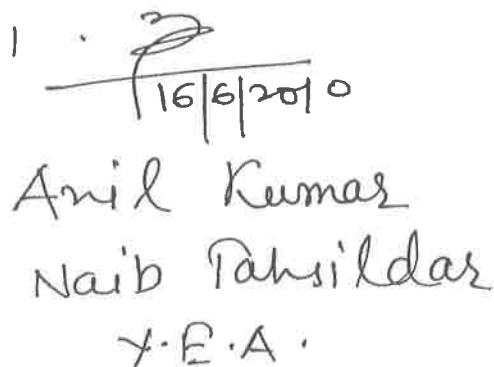 1.
16/6/2010
Anil Kumar
Naib Tahsildar
Y.E.A.